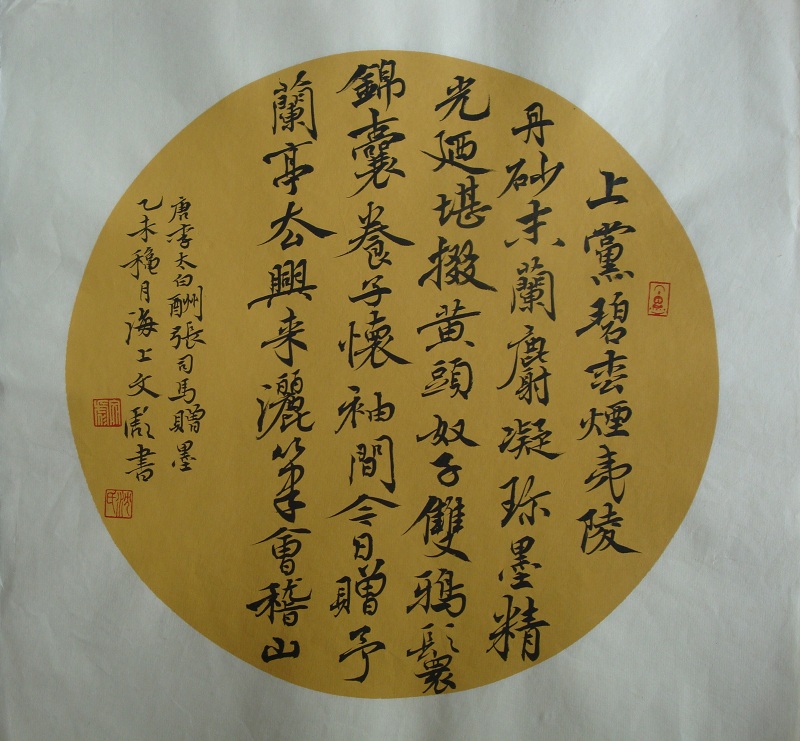 上黨碧枩煙夷陵
丹砂末蘭麝凝珎墨精
光廼堪掇黄頭奴子雙鴉鬟
錦囊養子懷袖間今日贈予
蘭亭去興来灑筆會稽山
唐李太白酬張司馬贈墨
乙未穐月海上文書